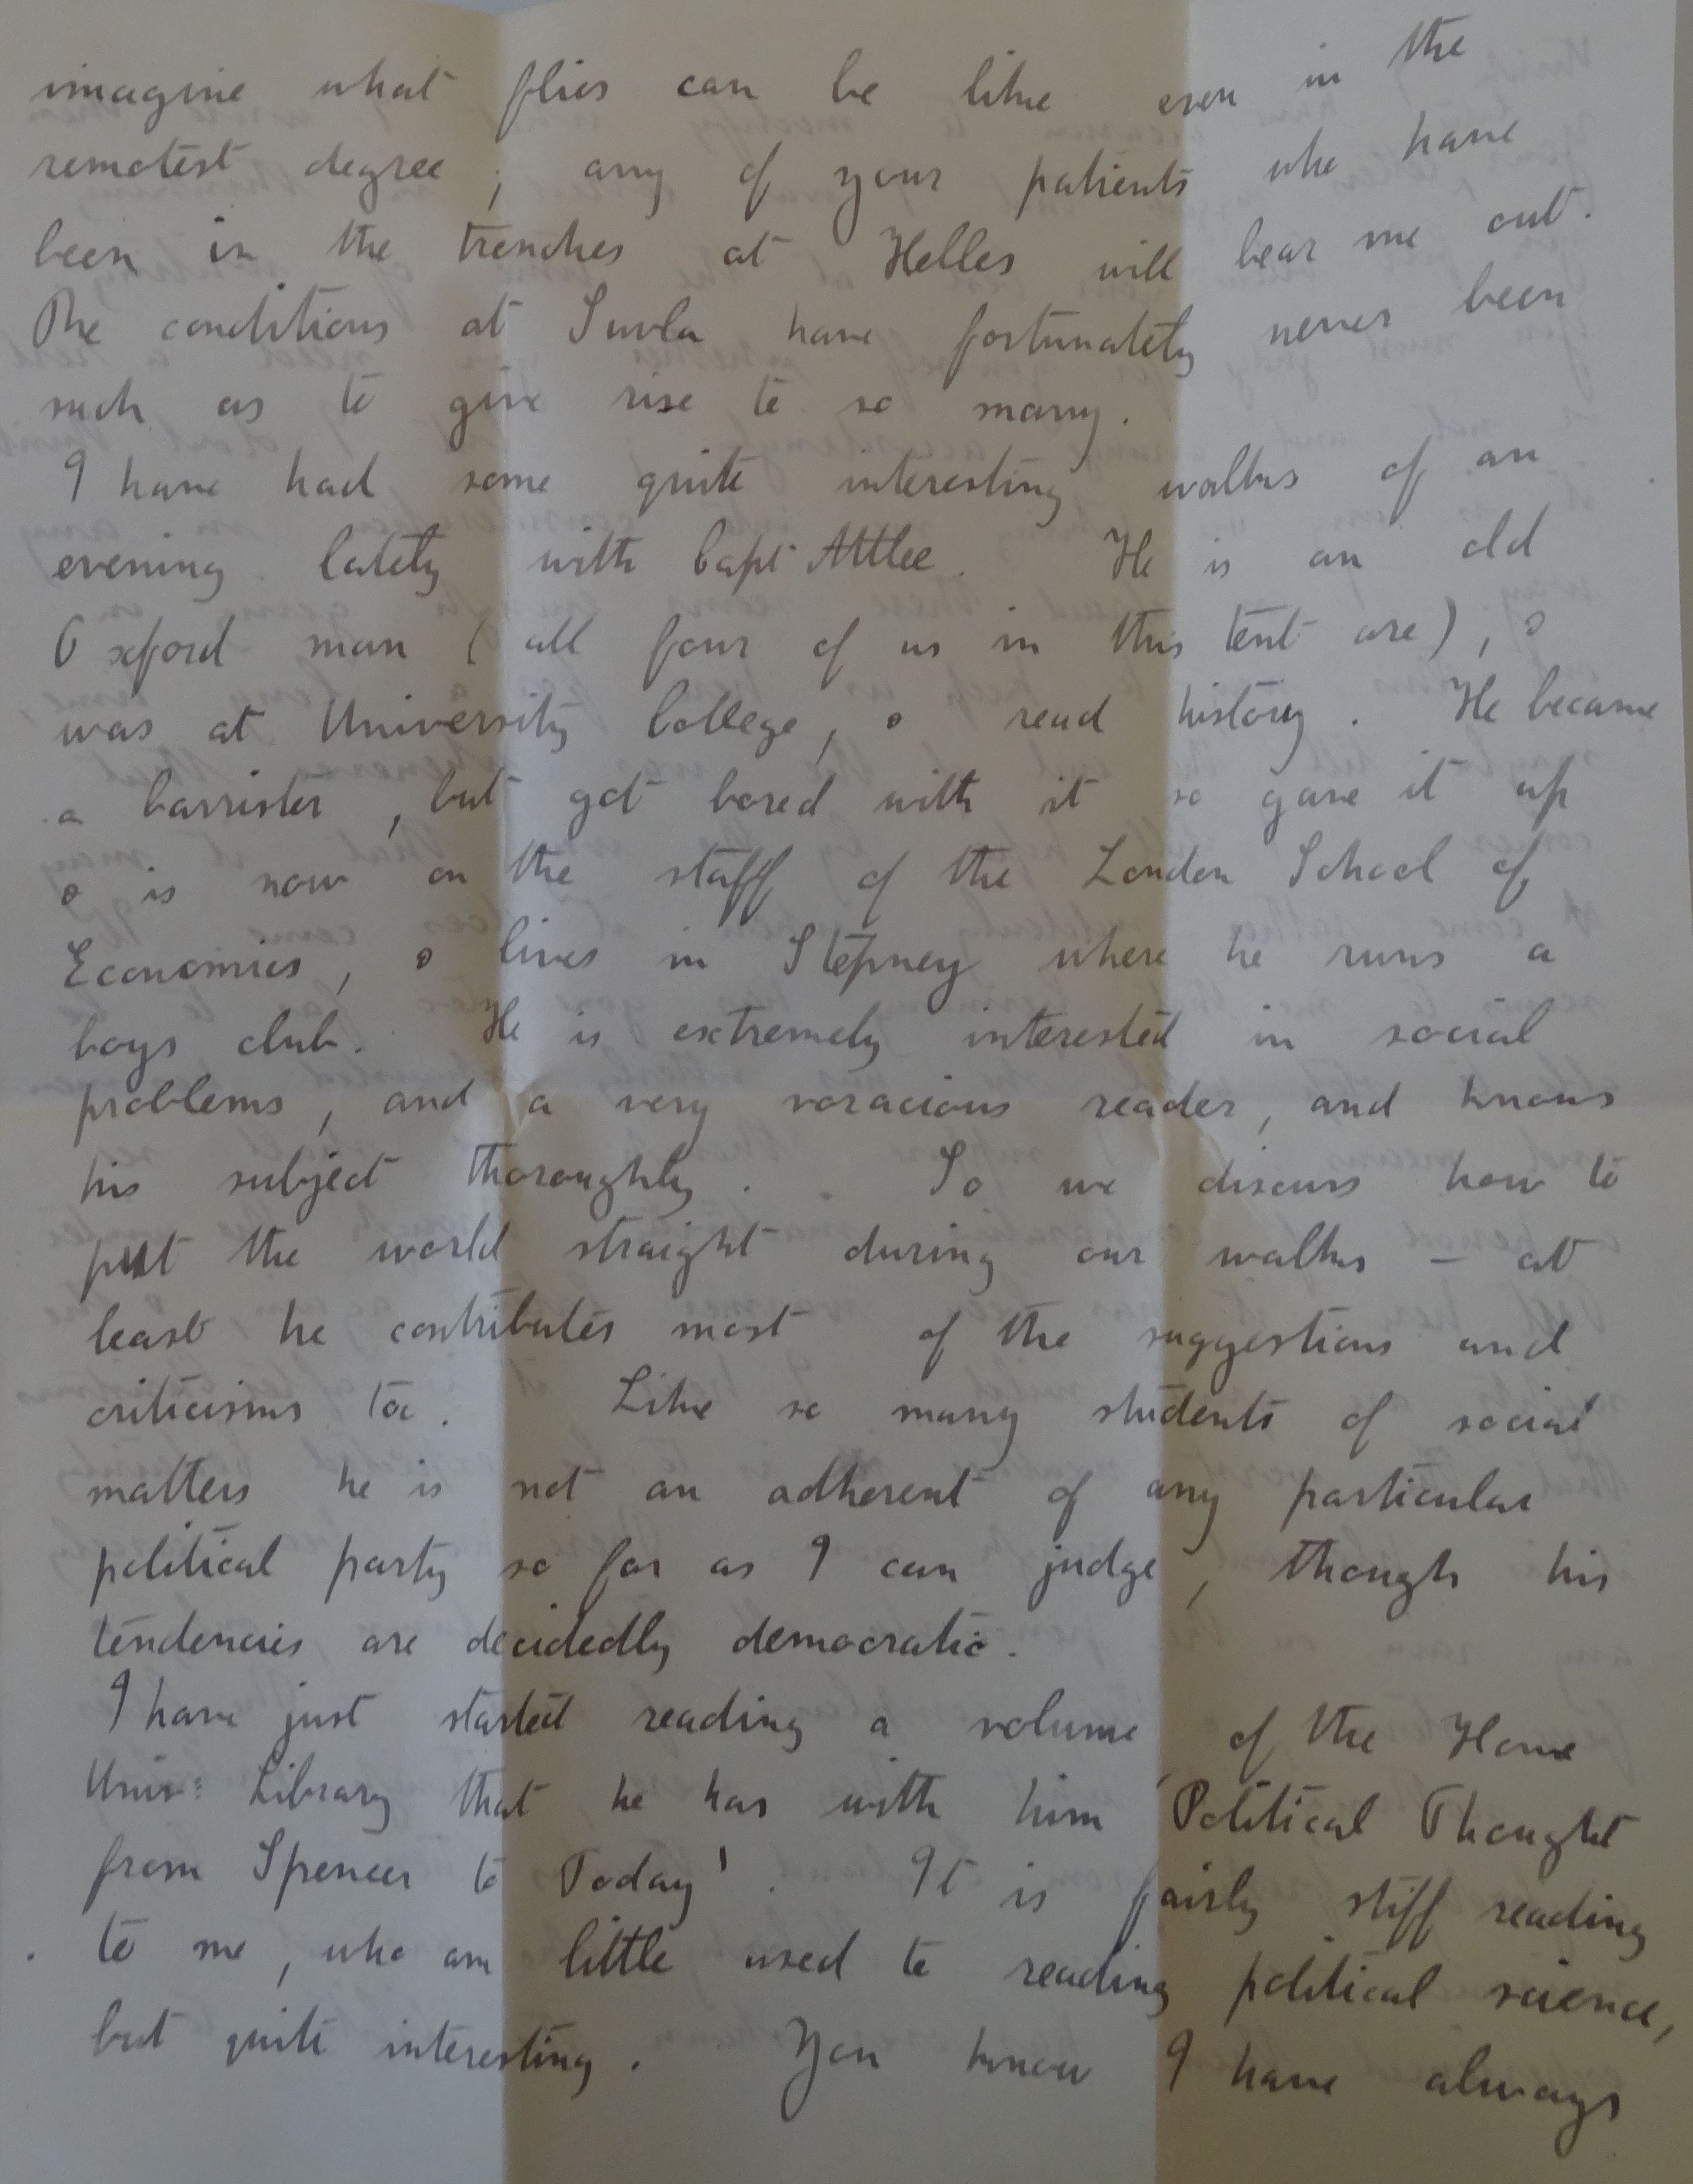 imagine what flies can be like even in the
remotest degree ; any of your patients who have
been in the trenches at Helles will bear me out.
The conditions at Suvla have fortunately never been
such as to give rise to so many.
I have had some quite interesting walks of an
evening lately with Capt Attlee. He is an old
Oxford man (all four of us in this tent are), &
was at University College, & read history. He became
a barrister, but got bored with it so gave it up
& is now on the staff of the London School of
Economics, & lives in Stepney where he runs a
boys club. He is extremely interested in social
problems, and a very voracious reader, and knows
his subject thoroughly. So we discuss how to
put the world straight during our walks – at
least he contributes most of the suggestions and
criticisms too. Like so many students of social
matters he is not an adherent of any particular
political party so far as I can judge, though his
tendencies are decidedly democratic.
I have just started reading a volume of the Home
Univ: Library that he has with him 'Political Thought
from Spencer to Today'. It is fairly stiff reading
to me, who am little used to reading political science,
but quite interesting. You know I have always